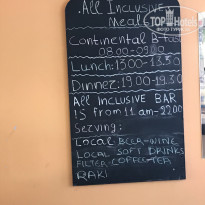 .All Inclusive
Meals
Continental B'fast
08.00-09.00
Lunch:13.00-13.30
Dinner:19.00-19.30
ALL INCLUSIVE BAR
IS FROM 11 am-22.00
Serving:
LOCAL BEER-WINE
LOCAL SOFT DRINKS
FILTER COFFEE-TEA
RAKI
TOP HOTELS